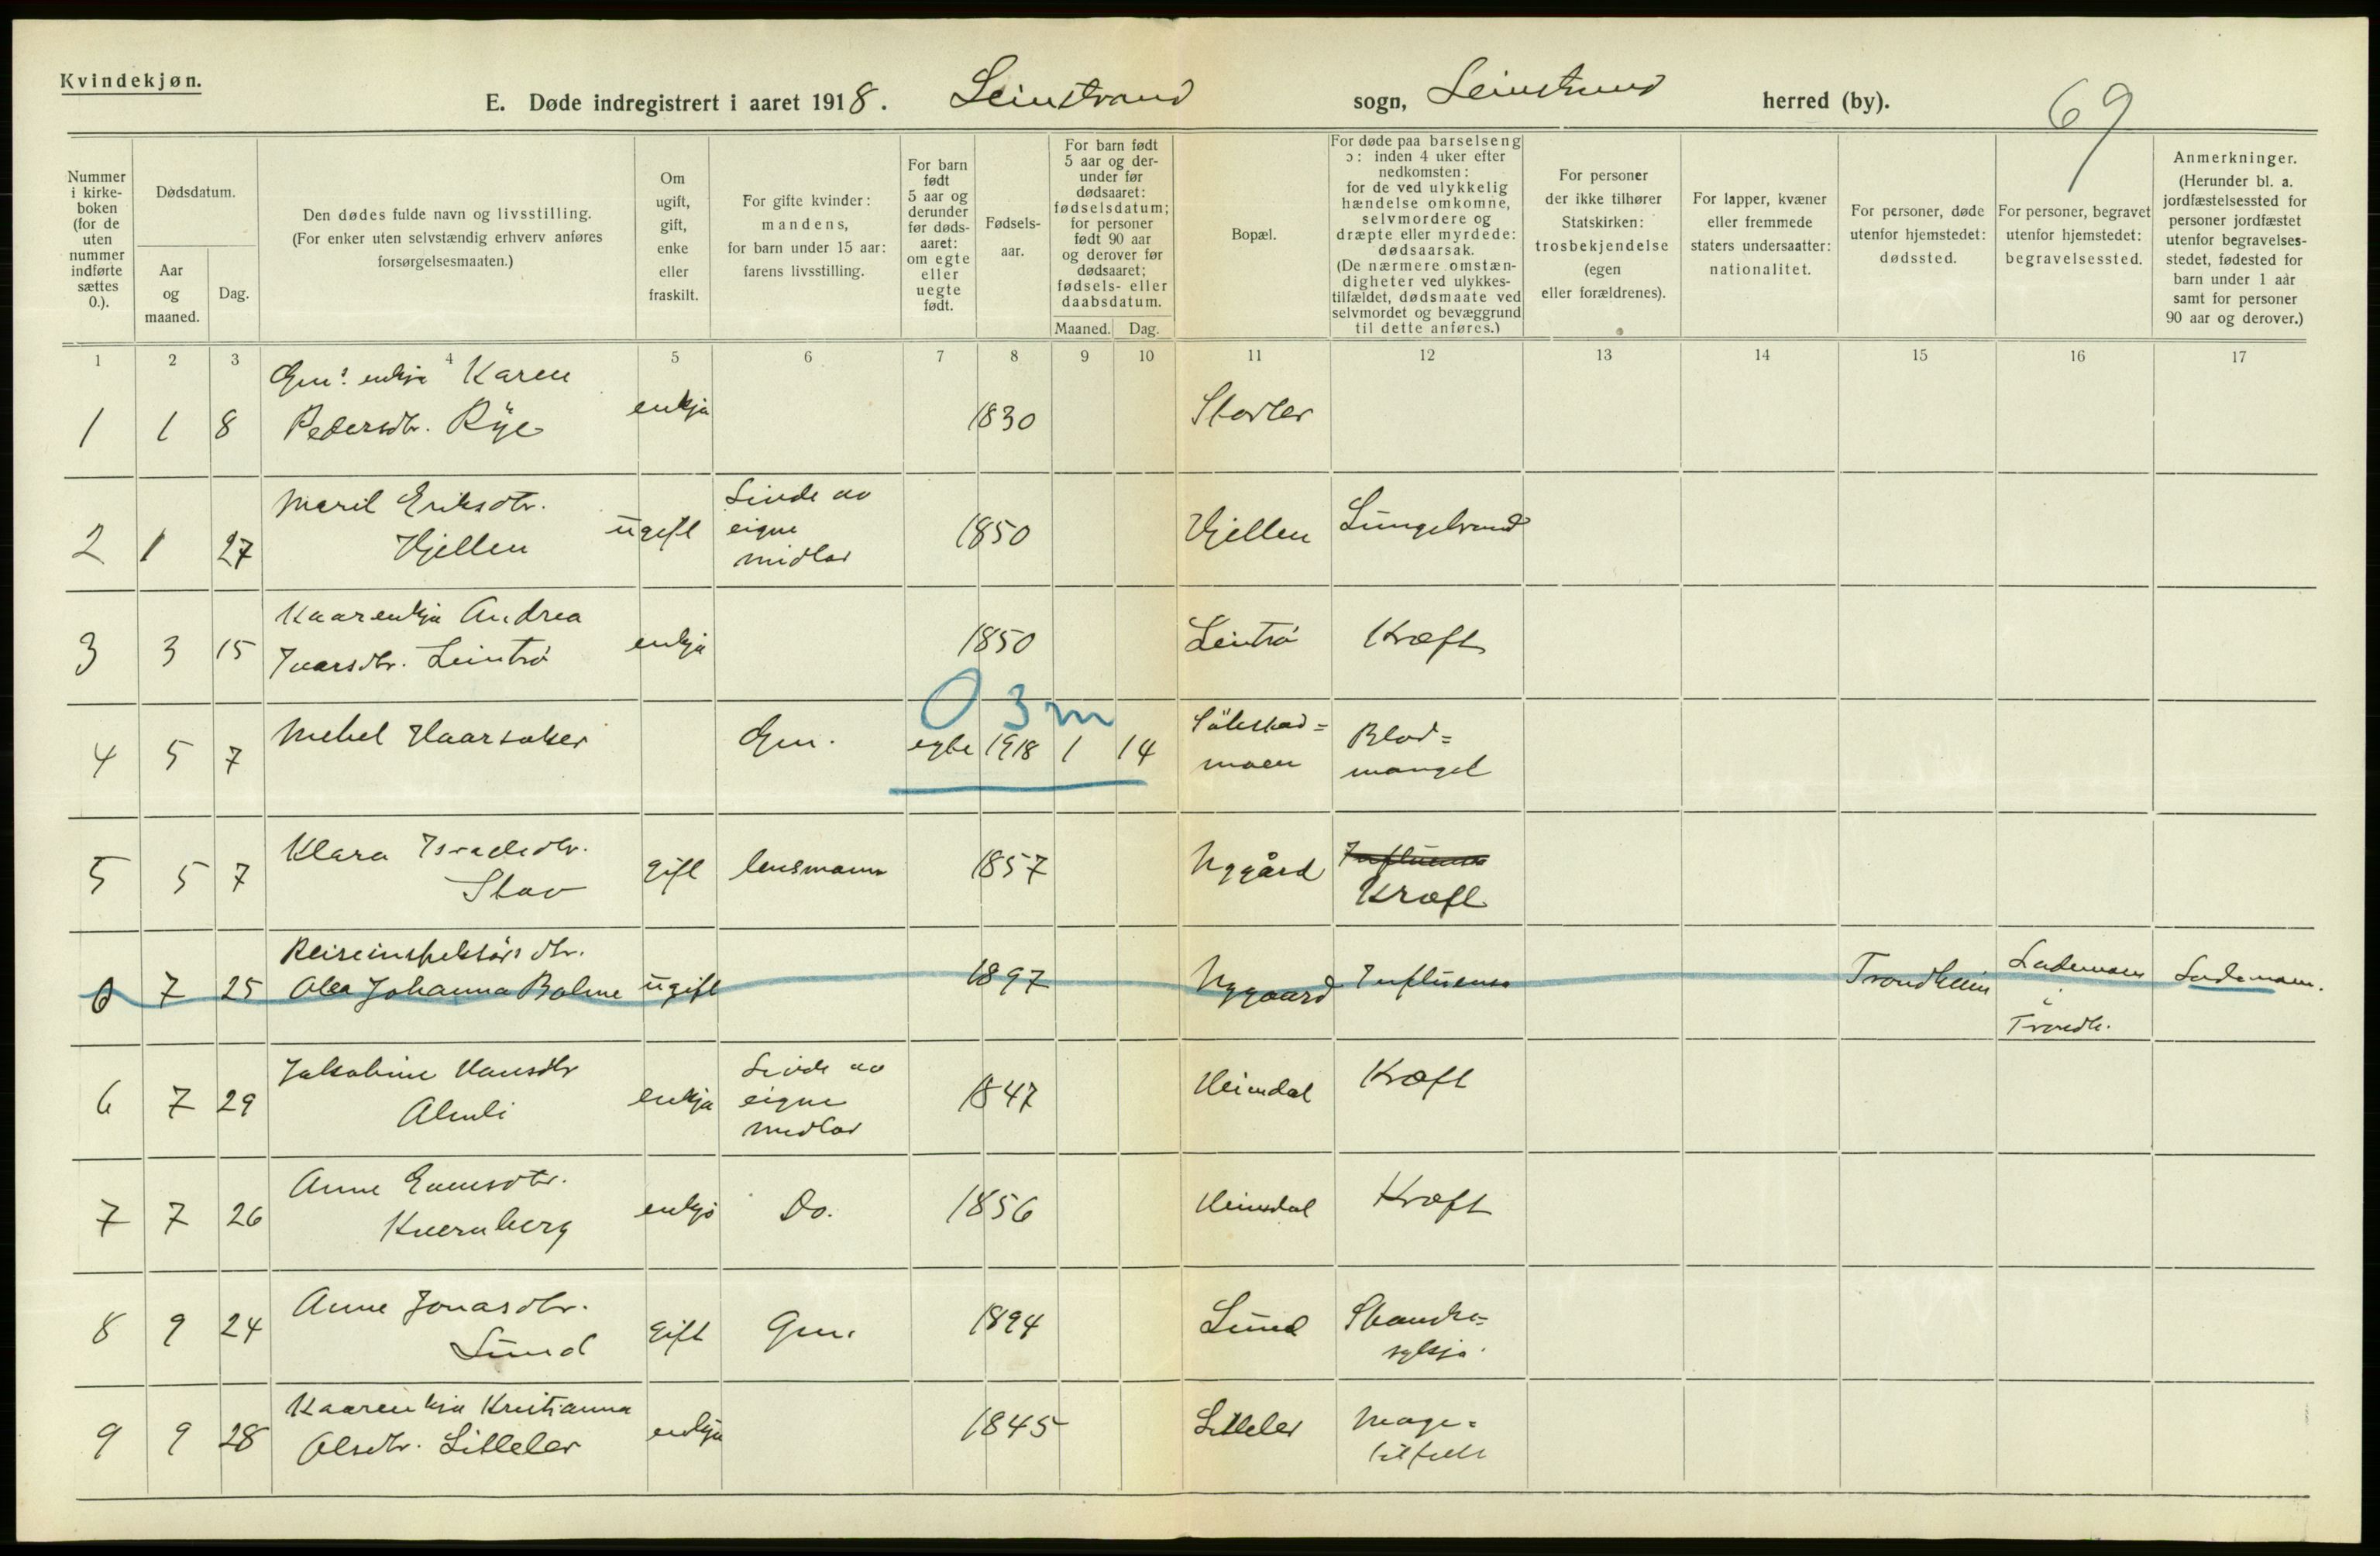 Kvindekjøn.
E. Døde indregistrert i aaret 1918. Leinstrand sogn, Leinstrand herred (by). 69
Nummer i kirke-boken (for de uten nummer indførte sættes 0.).
Dødsdatum.
Aar og maaned.
Dag.
Den dødes fulde navn og livsstilling.
(For enker uten selvstændig erhverv anføres forsørgelsesmaaten.)
Om ugift, gift, enke eller fraskilt.
For gifte kvinder: mandens, for barn under 15 aar: farens livsstilling.
For barn født 5 aar og derunder før døds-aaret: om egte eller uegte født.
Fødsels-aar.
For barn født 5 aar og der-under før dødsaaret: fødselsdatum; for personer født 90 aar og derover før dødsaaret; fødsels- eller daabsdatum.
Maaned. Dag.
Bopæl.
For døde paa barselseng ɔ: inden 4 uker efter nedkomsten: for de ved ulykkelig hændelse omkomne, selvmordere og dræpte eller myrdede: dødsaarsak.
(De nærmere omstæn-digheter ved ulykkes-tilfældet, dødsmaate ved selvmordet og bevæggrund til dette anføres.)
For personer der ikke tilhører Statskirken: trosbekjendelse (egen eller forældrenes).
For lapper, kvæner eller fremmede staters undersaatter: nationalitet.
For personer, døde utenfor hjemstedet: dødssted.
For personer, begravet utenfor hjemstedet: begravelsessted.
Anmerkninger.
(Herunder bl. a. jordfæstelsessted for personer jordfæstet utenfor begravelses-stedet, fødested for barn under 1 aar samt for personer 90 aar og derover.)
1 2 3 4 5 6 7 8 9 10 11 12 13 14 15 16 17
1 1 8 Gm's enkja Karen Pedersdtr. Rye enkja 1830 Storler
2 1 27 Marit Eriksdtr. Hjellen ugift Livde av eigne midlar 1850 Hjellen
3 3 15 Kaarenkja Andrea Ivarsdtr. Leintrø enkja 1850 Leintrø Kræft
0 3 m
4 5 7 Haarsaker Gm. egte 1918 1 14 moen Blod=mangel
5 5 7 Klara Israelsdtr. Stav gift lensmann 1857 Nygård Influensa Kræft
0 7 25 Reiseinspektørs dtr. Olea Johanna Bolme ugift 1897 Nygaard Influensa Trondheim Lademoen i Trondh. Lademoen.
6 7 29 Jakobine Hansdtr Almli enkja Livde av eigne midlar 1847 Heimdal Kræft
7 7 26 Anne Kvernberg enkja Do. 1856 Heimdal Kræft
8 9 24 Anne Jonasdtr. Lund gift Gm. 1894 Lund
9 9 28 Kaarenkja Kristianna Olsdtr. Litleler enkja 1845 Litleler Mage=